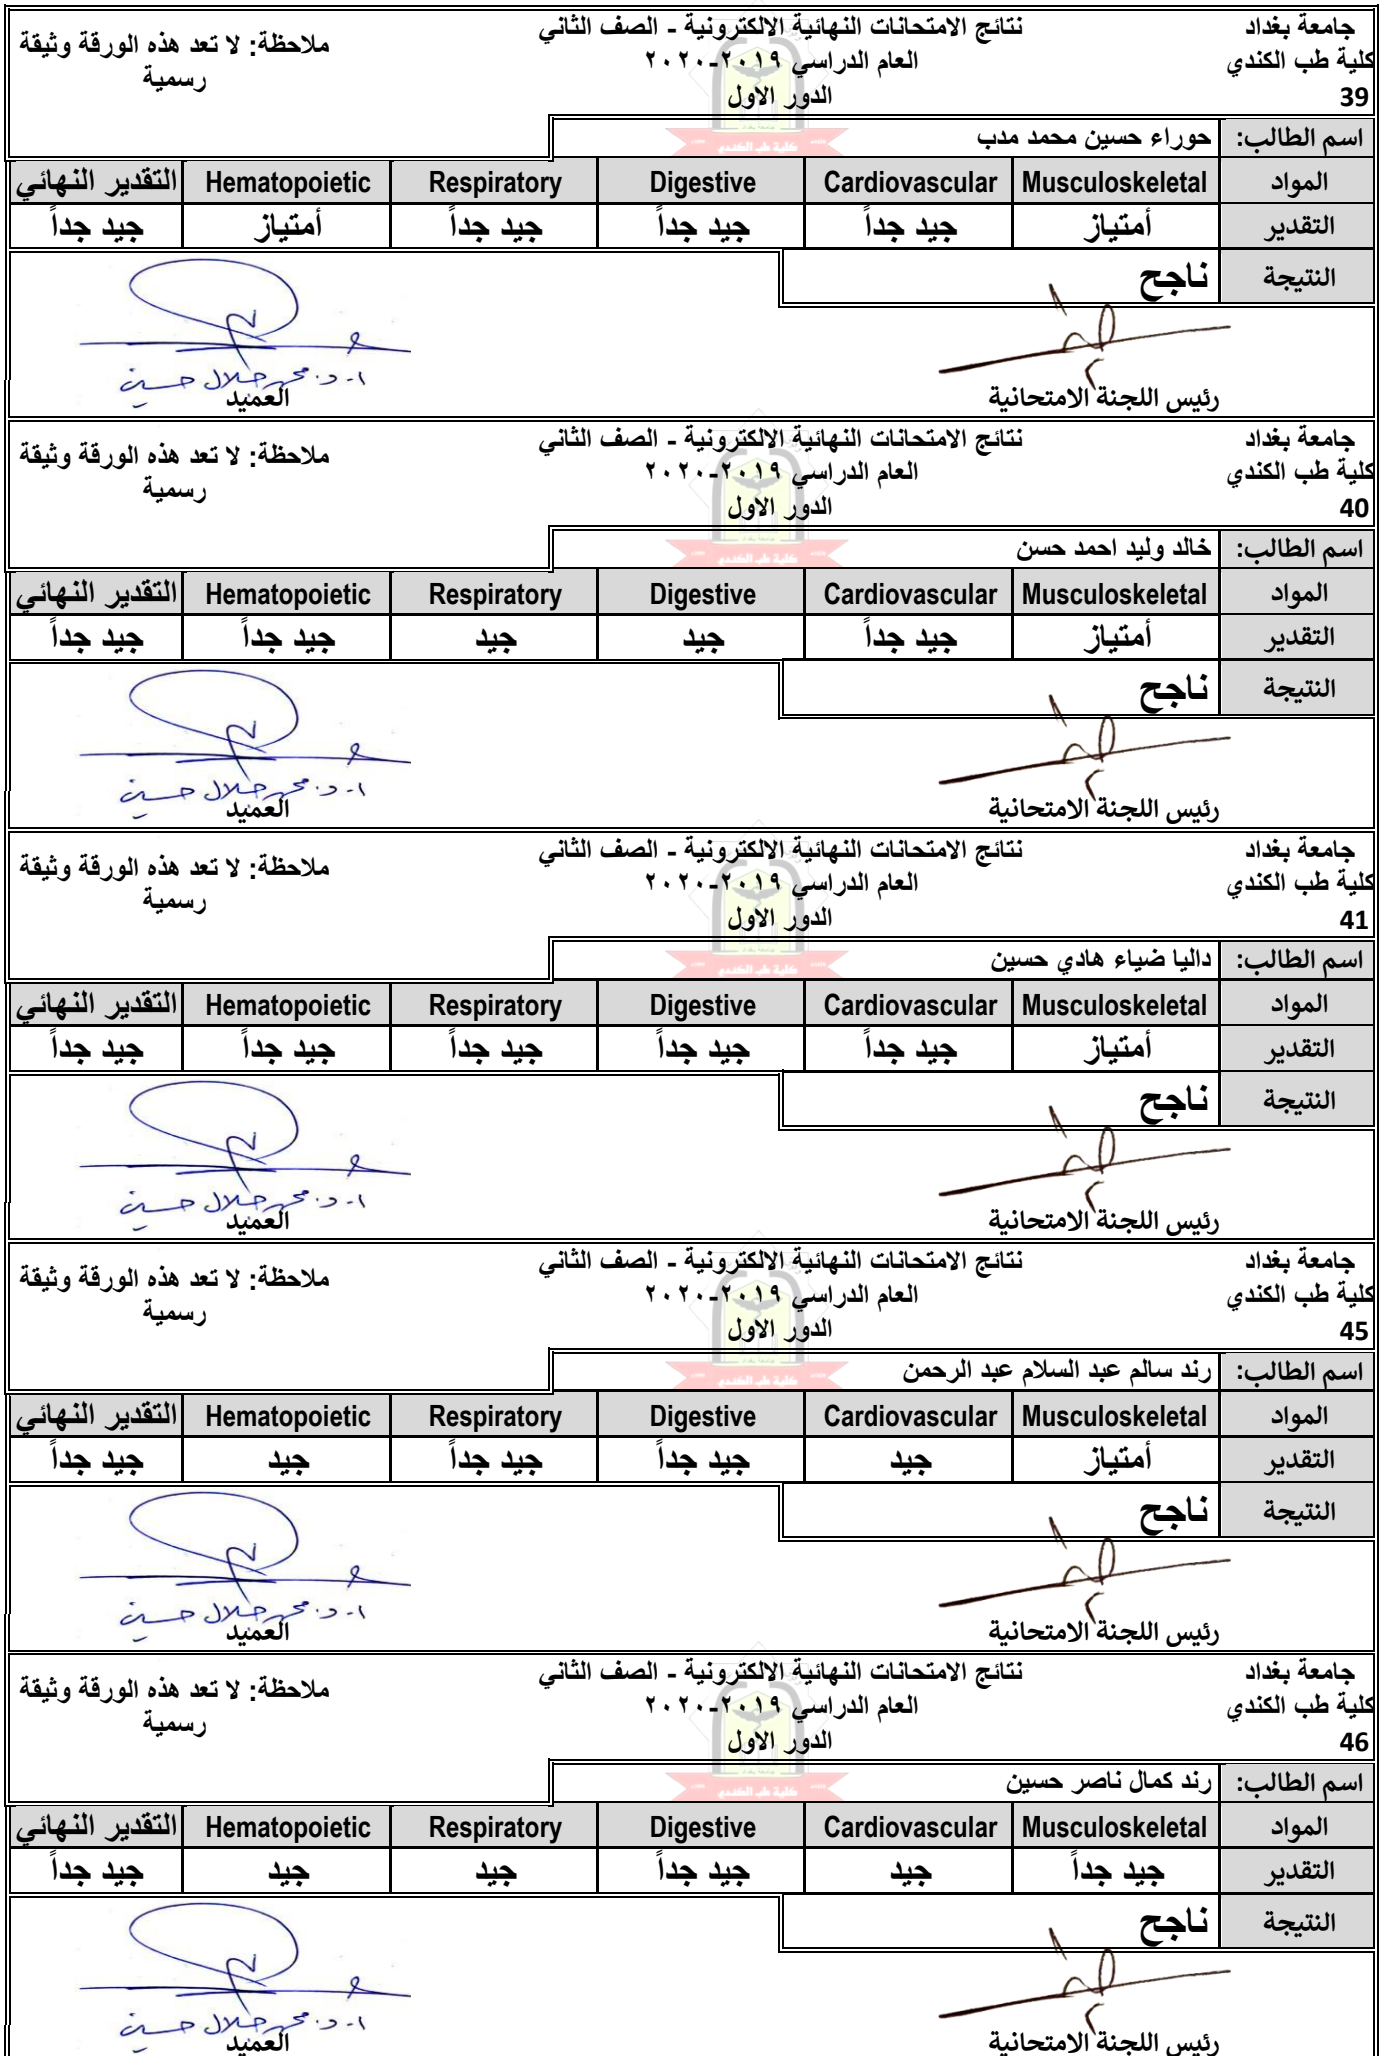 جامعة بغداد
كلية طب الكندي
39
نتائج الامتحانات النهائية الالكترونية - الصف الثاني
العام الدراسي ٢٠١٩-٢٠٢٠
الدور الاول
ملاحظة: لا تعد هذه الورقة وثيقة
رسمية
كلية طب الكندي
اسم الطالب: حوراء حسين محمد مدب
المواد Musculoskeletal Cardiovascular Digestive Respiratory Hematopoietic التقدير النهائي
التقدير أمتياز جيد جداً جيد جداً جيد جداً أمتياز جيد جداً
النتيجة ناجح
رئيس اللجنة الامتحانية
ا. د. محمد جلال حسين
العميد
جامعة بغداد
كلية طب الكندي
40
نتائج الامتحانات النهائية الالكترونية - الصف الثاني
العام الدراسي ٢٠١٩-٢٠٢٠
الدور الاول
ملاحظة: لا تعد هذه الورقة وثيقة
رسمية
كلية طب الكندي
اسم الطالب: خالد وليد احمد حسن
المواد Musculoskeletal Cardiovascular Digestive Respiratory Hematopoietic التقدير النهائي
التقدير أمتياز جيد جداً جيد جيد جيد جداً جيد جداً
النتيجة ناجح
رئيس اللجنة الامتحانية
ا. د. محمد جلال حسين
العميد
جامعة بغداد
كلية طب الكندي
41
نتائج الامتحانات النهائية الالكترونية - الصف الثاني
العام الدراسي ٢٠١٩-٢٠٢٠
الدور الاول
ملاحظة: لا تعد هذه الورقة وثيقة
رسمية
كلية طب الكندي
اسم الطالب: داليا ضياء هادي حسين
المواد Musculoskeletal Cardiovascular Digestive Respiratory Hematopoietic التقدير النهائي
التقدير أمتياز جيد جداً جيد جداً جيد جداً جيد جداً جيد جداً
النتيجة ناجح
رئيس اللجنة الامتحانية
ا. د. محمد جلال حسين
العميد
جامعة بغداد
كلية طب الكندي
45
نتائج الامتحانات النهائية الالكترونية - الصف الثاني
العام الدراسي ٢٠١٩-٢٠٢٠
الدور الاول
ملاحظة: لا تعد هذه الورقة وثيقة
رسمية
كلية طب الكندي
اسم الطالب: رند سالم عبد السلام عبد الرحمن
المواد Musculoskeletal Cardiovascular Digestive Respiratory Hematopoietic التقدير النهائي
التقدير أمتياز جيد جيد جداً جيد جداً جيد جيد جداً
النتيجة ناجح
رئيس اللجنة الامتحانية
ا. د. محمد جلال حسين
العميد
جامعة بغداد
كلية طب الكندي
46
نتائج الامتحانات النهائية الالكترونية - الصف الثاني
العام الدراسي ٢٠١٩-٢٠٢٠
الدور الاول
ملاحظة: لا تعد هذه الورقة وثيقة
رسمية
كلية طب الكندي
اسم الطالب: رند كمال ناصر حسين
المواد Musculoskeletal Cardiovascular Digestive Respiratory Hematopoietic التقدير النهائي
التقدير جيد جداً جيد جيد جداً جيد جيد جيد جداً
النتيجة ناجح
رئيس اللجنة الامتحانية
ا. د. محمد جلال حسين
العميد